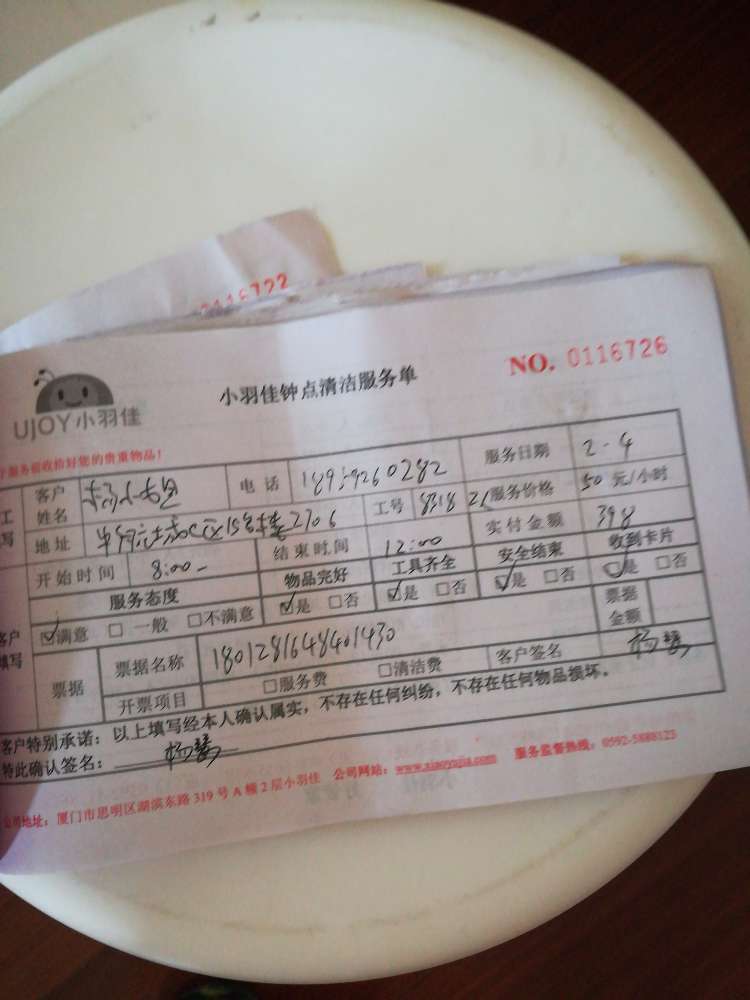 0116722
NO. 0116726
UJOY小羽佳
小羽佳钟点清洁服务单
服务前收拾好您的贵重物品!
客户姓名 电话 服务日期 2-4
地址 2706 工号 8318 服务价格 50 元/小时
开始时间 8:00 结束时间 12:00 实付金额 398
服务态度 物品完好 工具齐全 安全结束 收到卡片
☑满意 □ 一般 □不满意 ☑是 □否 ☑是 □否 ☑是 □否 ☑是 □否
票据 票据名称 1801281648401430 票据金额
开票项目 □服务费 □清洁费 客户签名 杨
客户特别承诺:以上填写经本人确认属实,不存在任何纠纷,不存在任何物品损坏。
特此确认签名: 杨
公司地址:厦门市思明区湖滨东路 319 号 A 幢 2 层小羽佳 公司网站:www.xiaoyujia.com 服务监督热线:0592-5888123